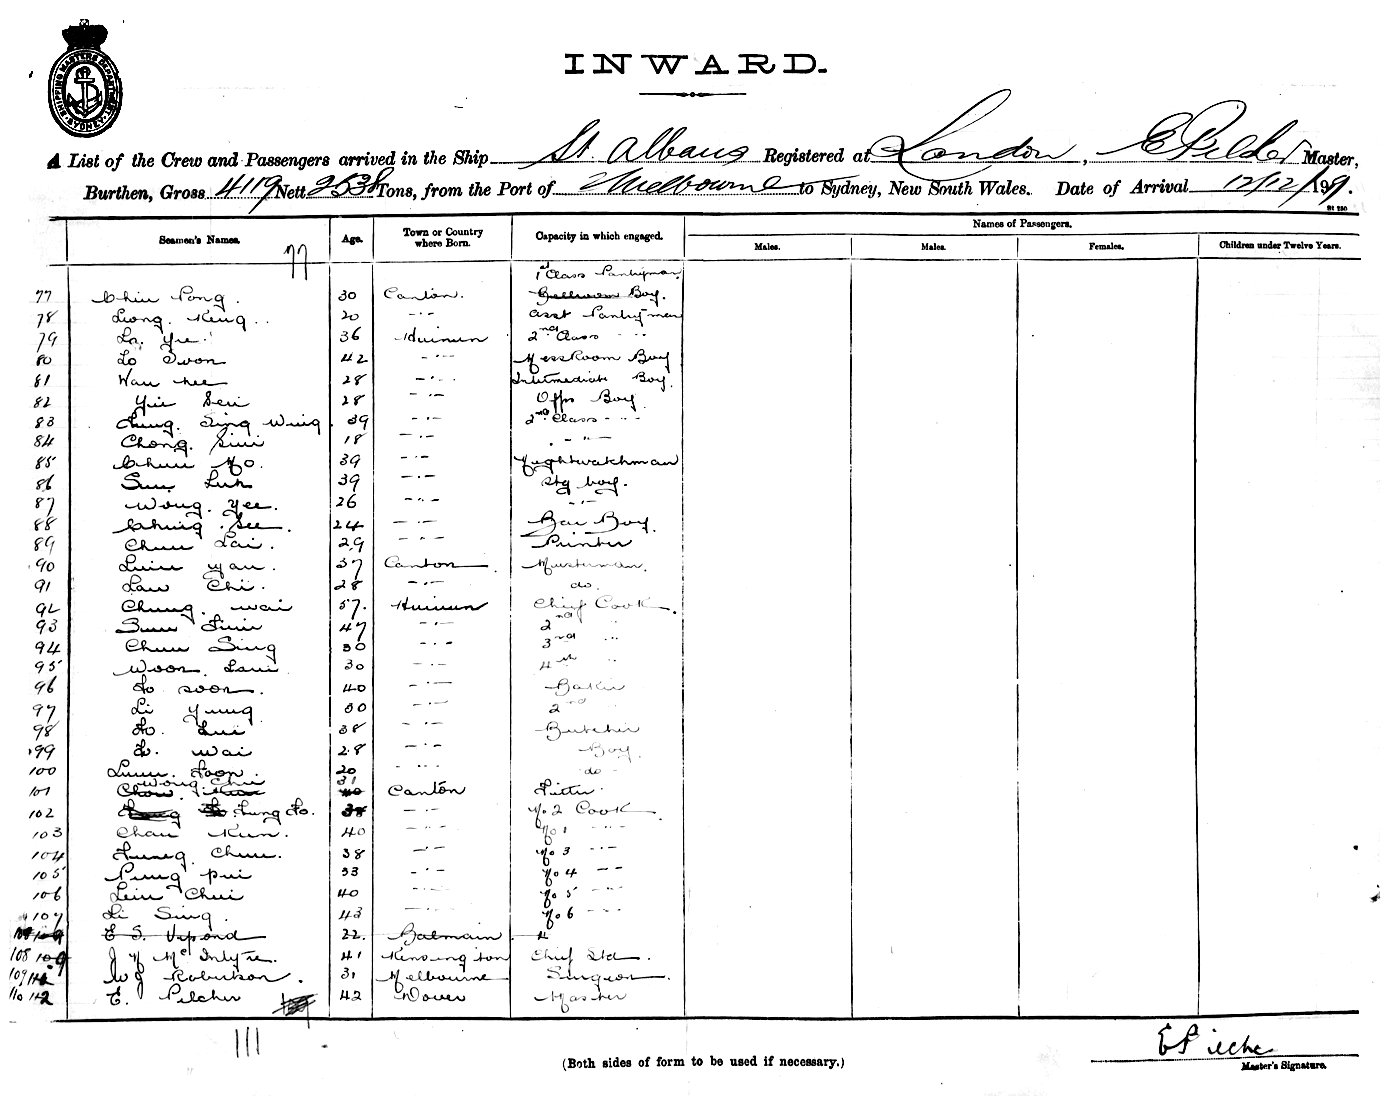 SHIPPING MASTERS DEPARTMENT SYDNEY
INWARD.
A List of the Crew and Passengers arrived in the Ship St. Albans Registered at London, E Pilcher Master,
Burthen, Gross 4119 Nett 2538 Tons, from the Port of Melbourne to Sydney, New South Wales. Date of Arrival 12/12/19
Seamen's Names. Age. Town or Country where Born. Capacity in which engaged. Names of Passengers.
Males. Males. Females. Children under Twelve Years.
77
1st Class Pantryman
77 Chiu Pong. 30 Canton. Boy.
78 Leong. Keng 20 -"- Asst Pantryman
79 La. Yee. 36 Huinun 2nd Class " "
80 Lo Soon 42 -"- Messroom Boy
81 Wau Kee 28 -"- Intermediate Boy.
82 Yiu Seu 28 -"- Offrs Boy.
83 Fung. Sing Wing. 39 -"- 2nd Class -"-
84 Chong. Siu 18 -"- -"-
85 Chun Yo. 39 -"- Nightwatchman
86 Sun Luk 39 -"- Stg boy.
87 Wong. Yee. 26 -"- -"-
88 Ching. See. 24 -"- Bar Boy.
89 Chun Lai. 29 -"- Printer
90 Luiu Yau. 37 Canton. Musterman.
91 Law Chi. 28 -"- do.
92 Chung. Wai 57. Huinun Chief Cook.
93 Sun 47 -"- 2nd "
94 Chun Sing 30 -"- 3rd "
95 Woon. 30 -"- 4th "
96 Fo Soon. 40 -"- Baker
97 Li Yung 30 -"- 2nd "
98 Fo. Lui 38 -"- Butcher
99 Fo. Wai 28 -"- Boy.
100 Foon. 20 -"- do
Wong Chu 31
101 Chow 40 Canton Fitter
102 Fung Fo. 38 -"- No 2 Cook
103 Chau Kun. 40 -"- No 1 -"-
104 Fung Chun. 38 -"- No 3 -"-
105 Pung Pui 33 -"- No 4 -"-
106 Leiu Chui 40 -"- No 5 -"-
107 Li Sing. 43 -"- No 6 -"-
108 109 E S. Vipond 22. Balmain "
108 109 J N McIntyre. 41 Kensington Chief Std.
109 W J Robertson. 31 Melbourne Surgeon.
110 112 E. Pilcher 42 Dover Master
111
E Pilcher
(Both sides of form to be used if necessary.)
Master's Signature.